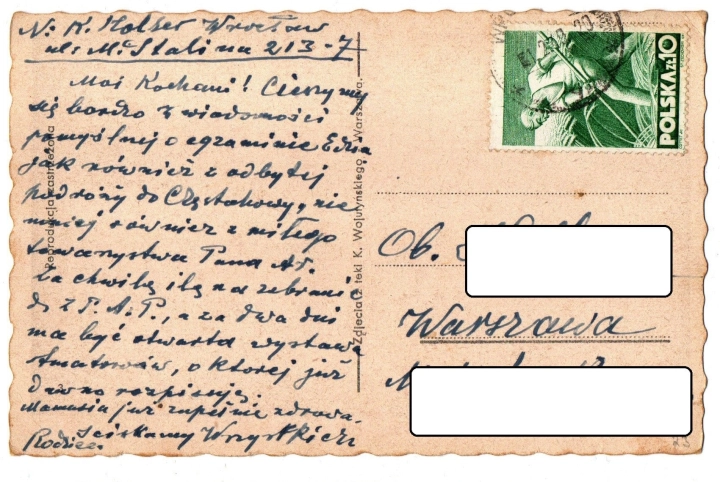 N: K. Holzer Wrocław
ul: M. Stalina 213-7
Moi Kochani! Cieszymy
się bardzo z wiadomości
pomyślnej o egzaminie Edka
jak również z odbytej
podróży do Częstochowy, nie
mniej również z miłego
towarzystwa Pana
Za chwilę idę na zebranie
do Z.P.A.P., a za dwa dni
ma być otwarta wystawa
Amatorów, o której już
dawno rozpisują.
Mamusia już zupełnie zdrowa.
Ściskamy Wszystkich
Rodzice
Reprodukcja zastrzeżona
Zdjęcia z teki K. Wojutyńskiego, Warszawa.
POLSKA ZŁ 10
Ob.
Warszawa